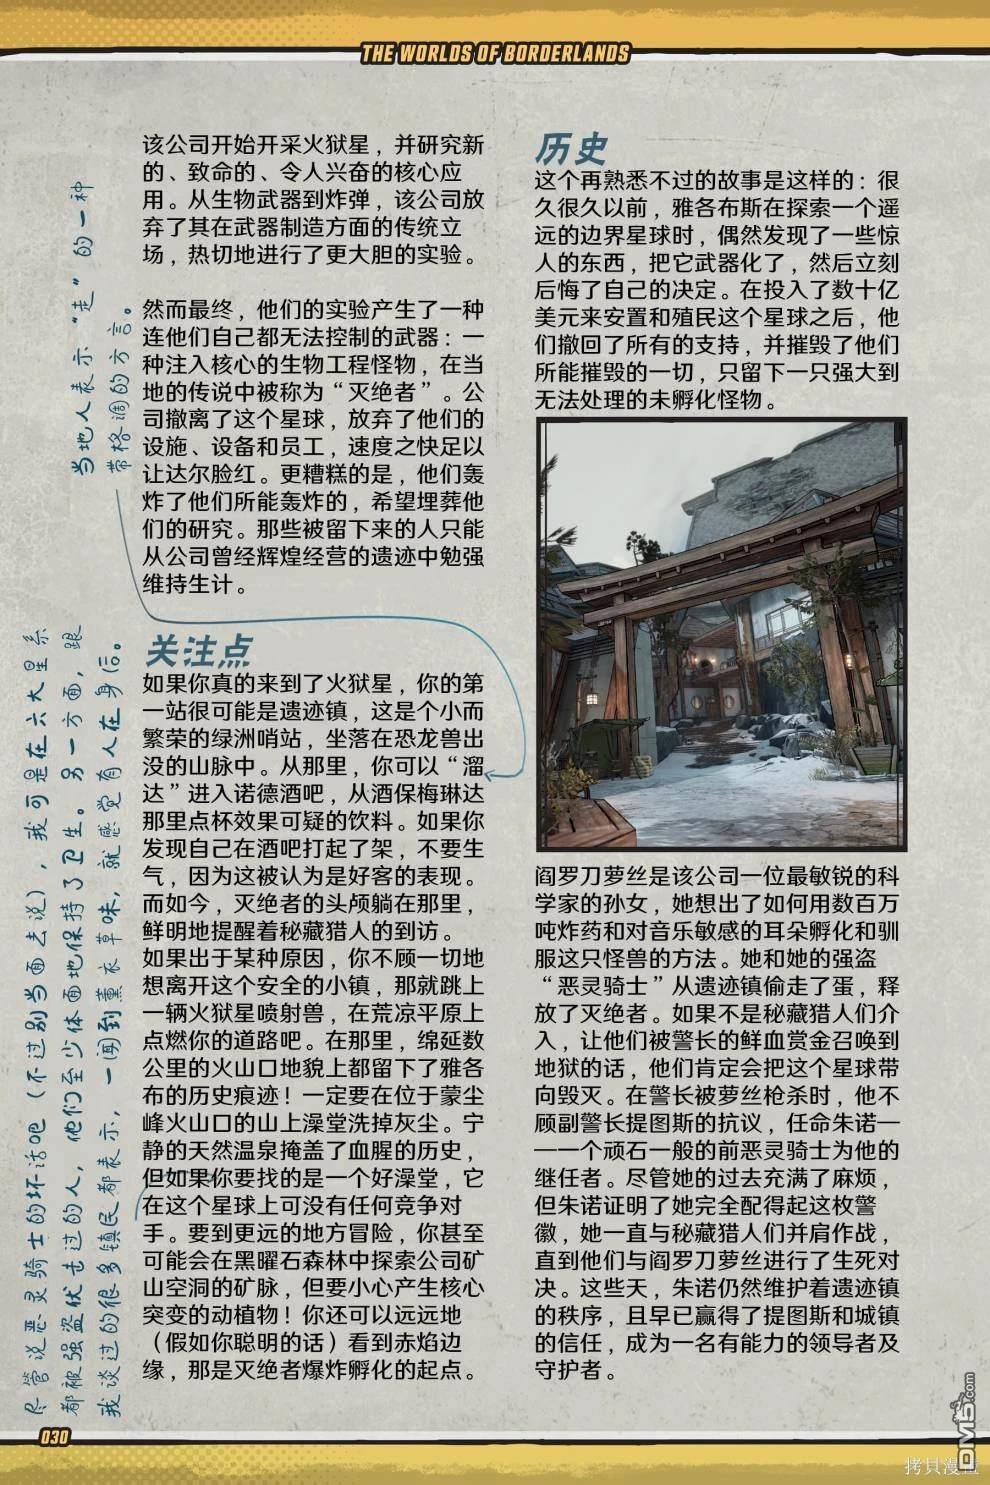 THE WORLDS OF BORDERLANDS
该公司开始开采火狱星，并研究新
的、致命的、令人兴奋的核心应
用。从生物武器到炸弹，该公司放
弃了其在武器制造方面的传统立
场，热切地进行了更大胆的实验。
然而最终，他们的实验产生了一种
连他们自己都无法控制的武器：一
种注入核心的生物工程怪物，在当
地的传说中被称为“灭绝者”。公
司撤离了这个星球，放弃了他们的
设施、设备和员工，速度之快足以
让达尔脸红。更糟糕的是，他们轰
炸了他们所能轰炸的，希望埋葬他
们的研究。那些被留下来的人只能
从公司曾经辉煌经营的遗迹中勉强
维持生计。
关注点
如果你真的来到了火狱星，你的第
一站很可能是遗迹镇，这是个小而
繁荣的绿洲哨站，坐落在恐龙兽出
没的山脉中。从那里，你可以“溜
达”进入诺德酒吧，从酒保梅琳达
那里点杯效果可疑的饮料。如果你
发现自己在酒吧打起了架，不要生
气，因为这被认为是好客的表现。
而如今，灭绝者的头颅躺在那里，
鲜明地提醒着秘藏猎人的到访。
如果出于某种原因，你不顾一切地
想离开这个安全的小镇，那就跳上
一辆火狱星喷射兽，在荒凉平原上
点燃你的道路吧。在那里，绵延数
公里的火山口地貌上都留下了雅各
布的历史痕迹！一定要在位于蒙尘
峰火山口的山上澡堂洗掉灰尘。宁
静的天然温泉掩盖了血腥的历史，
但如果你要找的是一个好澡堂，它
在这个星球上可没有任何竞争对
手。要到更远的地方冒险，你甚至
可能会在黑曜石森林中探索公司矿
山空洞的矿脉，但要小心产生核心
突变的动植物！你还可以远远地
（假如你聪明的话）看到赤焰边
缘，那是灭绝者爆炸孵化的起点。
历史
这个再熟悉不过的故事是这样的：很
久很久以前，雅各布斯在探索一个遥
远的边界星球时，偶然发现了一些惊
人的东西，把它武器化了，然后立刻
后悔了自己的决定。在投入了数十亿
美元来安置和殖民这个星球之后，他
们撤回了所有的支持，并摧毁了他们
所能摧毁的一切，只留下一只强大到
无法处理的未孵化怪物。
阎罗刀萝丝是该公司一位最敏锐的科
学家的孙女，她想出了如何用数百万
吨炸药和对音乐敏感的耳朵孵化和驯
服这只怪兽的方法。她和她的强盗
“恶灵骑士”从遗迹镇偷走了蛋，释
放了灭绝者。如果不是秘藏猎人们介
入，让他们被警长的鲜血赏金召唤到
地狱的话，他们肯定会把这个星球带
向毁灭。在警长被萝丝枪杀时，他不
顾副警长提图斯的抗议，任命朱诺—
—一个顽石一般的前恶灵骑士为他的
继任者。尽管她的过去充满了麻烦，
但朱诺证明了她完全配得起这枚警
徽，她一直与秘藏猎人们并肩作战，
直到他们与阎罗刀萝丝进行了生死对
决。这些天，朱诺仍然维护着遗迹镇
的秩序，且早已赢得了提图斯和城镇
的信任，成为一名有能力的领导者及
守护者。
当地人表示“走”的一种
带格调的方言。
尽管说恶灵骑士的坏话吧（不过别当面去说），我可是在六大星系
都被强盗伏击过的人，他们至少体面地保持了卫生。另一方面，跟
我谈过的很多镇民都表示，一闻到薰衣草味，就感觉有人在身后。
030
DM5.com
拷貝漫畫